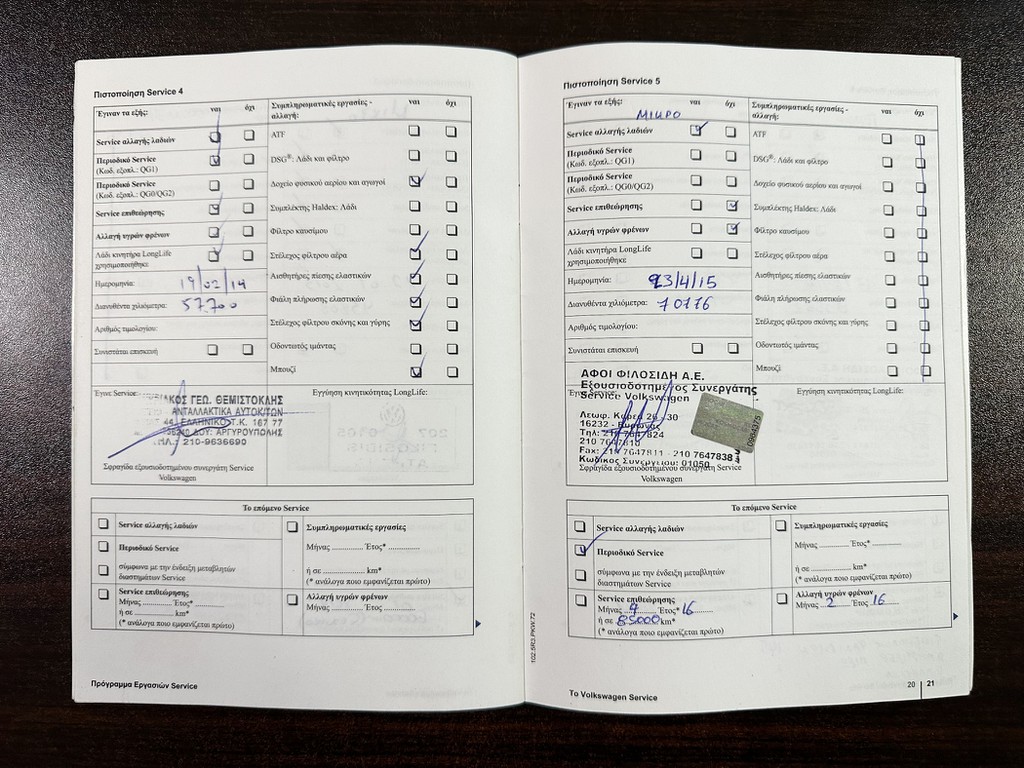 Πιστοποίηση Service 4
Έγιναν τα εξής: ναι όχι
Service αλλαγής λαδιών
Περιοδικό Service
(Κωδ. εξοπλ.: QG1)
Περιοδικό Service
(Κωδ. εξοπλ.: QG0/QG2)
Service επιθεώρησης
Αλλαγή υγρών φρένων
Λάδι κινητήρα LongLife
χρησιμοποιήθηκε
Ημερομηνία: 19/02/14
Διανυθέντα χιλιόμετρα: 57.700
Αριθμός τιμολογίου:
Συνιστάται επισκευή
Συμπληρωματικές εργασίες - ναι όχι
αλλαγή:
ATF
DSG®: Λάδι και φίλτρο
Δοχείο φυσικού αερίου και αγωγοί
Συμπλέκτης Haldex: Λάδι
Φίλτρο καυσίμου
Στέλεχος φίλτρου αέρα
Αισθητήρες πίεσης ελαστικών
Φιάλη πλήρωσης ελαστικών
Στέλεχος φίλτρου σκόνης και γύρης
Οδοντωτός ιμάντας
Μπουζί
Έγινε Service:
ΓΕΩ. ΘΕΜΙΣΤΟΚΛΗΣ
ΑΝΤΑΛΛΑΚΤΙΚΑ ΑΥΤΟΚ/ΤΩΝ
44, ΕΛΛΗΝΙΚΟ Τ.Κ. 167 77
ΔΟΥ: ΑΡΓΥΡΟΥΠΟΛΗΣ
ΤΗΛ.: 210-9636690
Σφραγίδα εξουσιοδοτημένου συνεργάτη Service
Volkswagen
Εγγύηση κινητικότητας LongLife:
Το επόμενο Service
Service αλλαγής λαδιών
Περιοδικό Service
σύμφωνα με την ένδειξη μεταβλητών
διαστημάτων Service
Service επιθεώρησης
Μήνας ............ Έτος* ............
ή σε ............ km*
(* ανάλογα ποιο εμφανίζεται πρώτο)
Συμπληρωματικές εργασίες
Μήνας ............ Έτος* ............
ή σε ............ km*
(* ανάλογα ποιο εμφανίζεται πρώτο)
Αλλαγή υγρών φρένων
Μήνας ............ Έτος ............
Πρόγραμμα Εργασιών Service
102.5R3.PKW.72
Πιστοποίηση Service 5
Έγιναν τα εξής: ναι όχι
ΜΙΚΡΟ
Service αλλαγής λαδιών
Περιοδικό Service
(Κωδ. εξοπλ.: QG1)
Περιοδικό Service
(Κωδ. εξοπλ.: QG0/QG2)
Service επιθεώρησης
Αλλαγή υγρών φρένων
Λάδι κινητήρα LongLife
χρησιμοποιήθηκε
Ημερομηνία: 23/4/15
Διανυθέντα χιλιόμετρα: 70776
Αριθμός τιμολογίου:
Συνιστάται επισκευή
Συμπληρωματικές εργασίες - ναι όχι
αλλαγή:
ATF
DSG®: Λάδι και φίλτρο
Δοχείο φυσικού αερίου και αγωγοί
Συμπλέκτης Haldex: Λάδι
Φίλτρο καυσίμου
Στέλεχος φίλτρου αέρα
Αισθητήρες πίεσης ελαστικών
Φιάλη πλήρωσης ελαστικών
Στέλεχος φίλτρου σκόνης και γύρης
Οδοντωτός ιμάντας
Μπουζί
Έγινε Service:
ΑΦΟΙ ΦΙΛΟΣΙΔΗ Α.Ε.
Εξουσιοδοτημένος Συνεργάτης
Service Volkswagen
Λεωφ. Καρέα 26 - 30
16232 - Βύρωνας
Τηλ: 210 7647824
210 7647810
Fax: 210 7647811 - 210 7647838
Κωδικος Συνεργείου: 01050
0994375
Σφραγίδα εξουσιοδοτημένου συνεργάτη Service
Volkswagen
Το επόμενο Service
Service αλλαγής λαδιών
Περιοδικό Service
σύμφωνα με την ένδειξη μεταβλητών
διαστημάτων Service
Service επιθεώρησης
Μήνας 4 Έτος* 16
ή σε 85000 km*
(* ανάλογα ποιο εμφανίζεται πρώτο)
Συμπληρωματικές εργασίες
Μήνας ............ Έτος* ............
ή σε ............ km*
(* ανάλογα ποιο εμφανίζεται πρώτο)
Αλλαγή υγρών φρένων
Μήνας 2 Έτος 16
Το Volkswagen Service
20 | 21